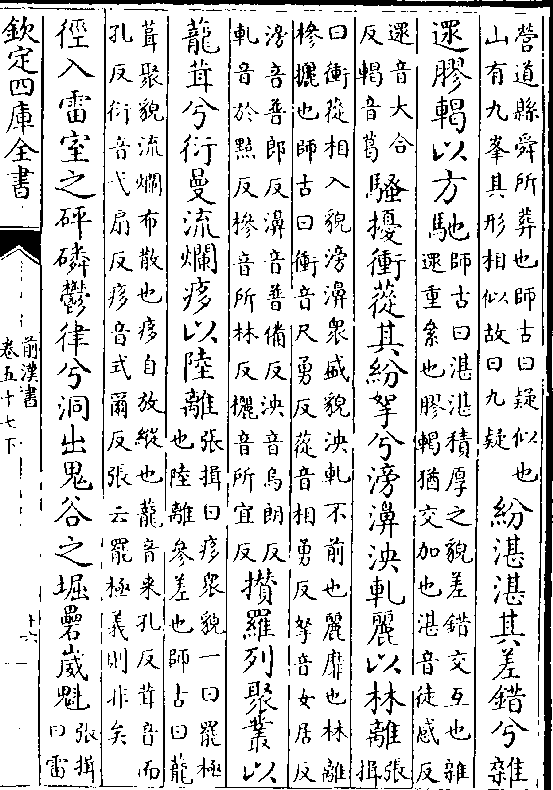 營道縣舜所葬也師古曰疑似也
山有九峯其形相似故曰九疑
紛湛湛其差錯兮雜
遝膠輵以方馳
師古曰湛湛積厚之貌差錯交互也雜
遝重絫也膠輵猶交加也湛音徒感反
遝音大合
反輵音葛
騷擾衝蓯其紛挐兮滂濞泱軋麗以林離
張揖
曰衝蓯相入貌滂濞衆盛貌泱軋不前也麗靡也林離
摻攦也師古曰衝音尺勇反蓯音相勇反挐音女居反
滂音普郎反濞音普備反泱音烏朗反
軋音於黠反摻音所林反攦音所宜反
攢羅列聚叢以
蘢茸兮衍曼流爛痑以陸離
張揖曰痑衆貌一曰罷極
也陸離參差也師古曰蘢
茸聚貌流爛布散也痑自放縱也蘢音來孔反茸音而
孔反衍音弋扇反痑音式爾反張云罷極義則非矣
徑入雷室之砰磷鬱律兮洞出鬼谷之堀礨崴魁
張揖
曰雷
欽定四庫全書
前漢書
卷五十七下
十六